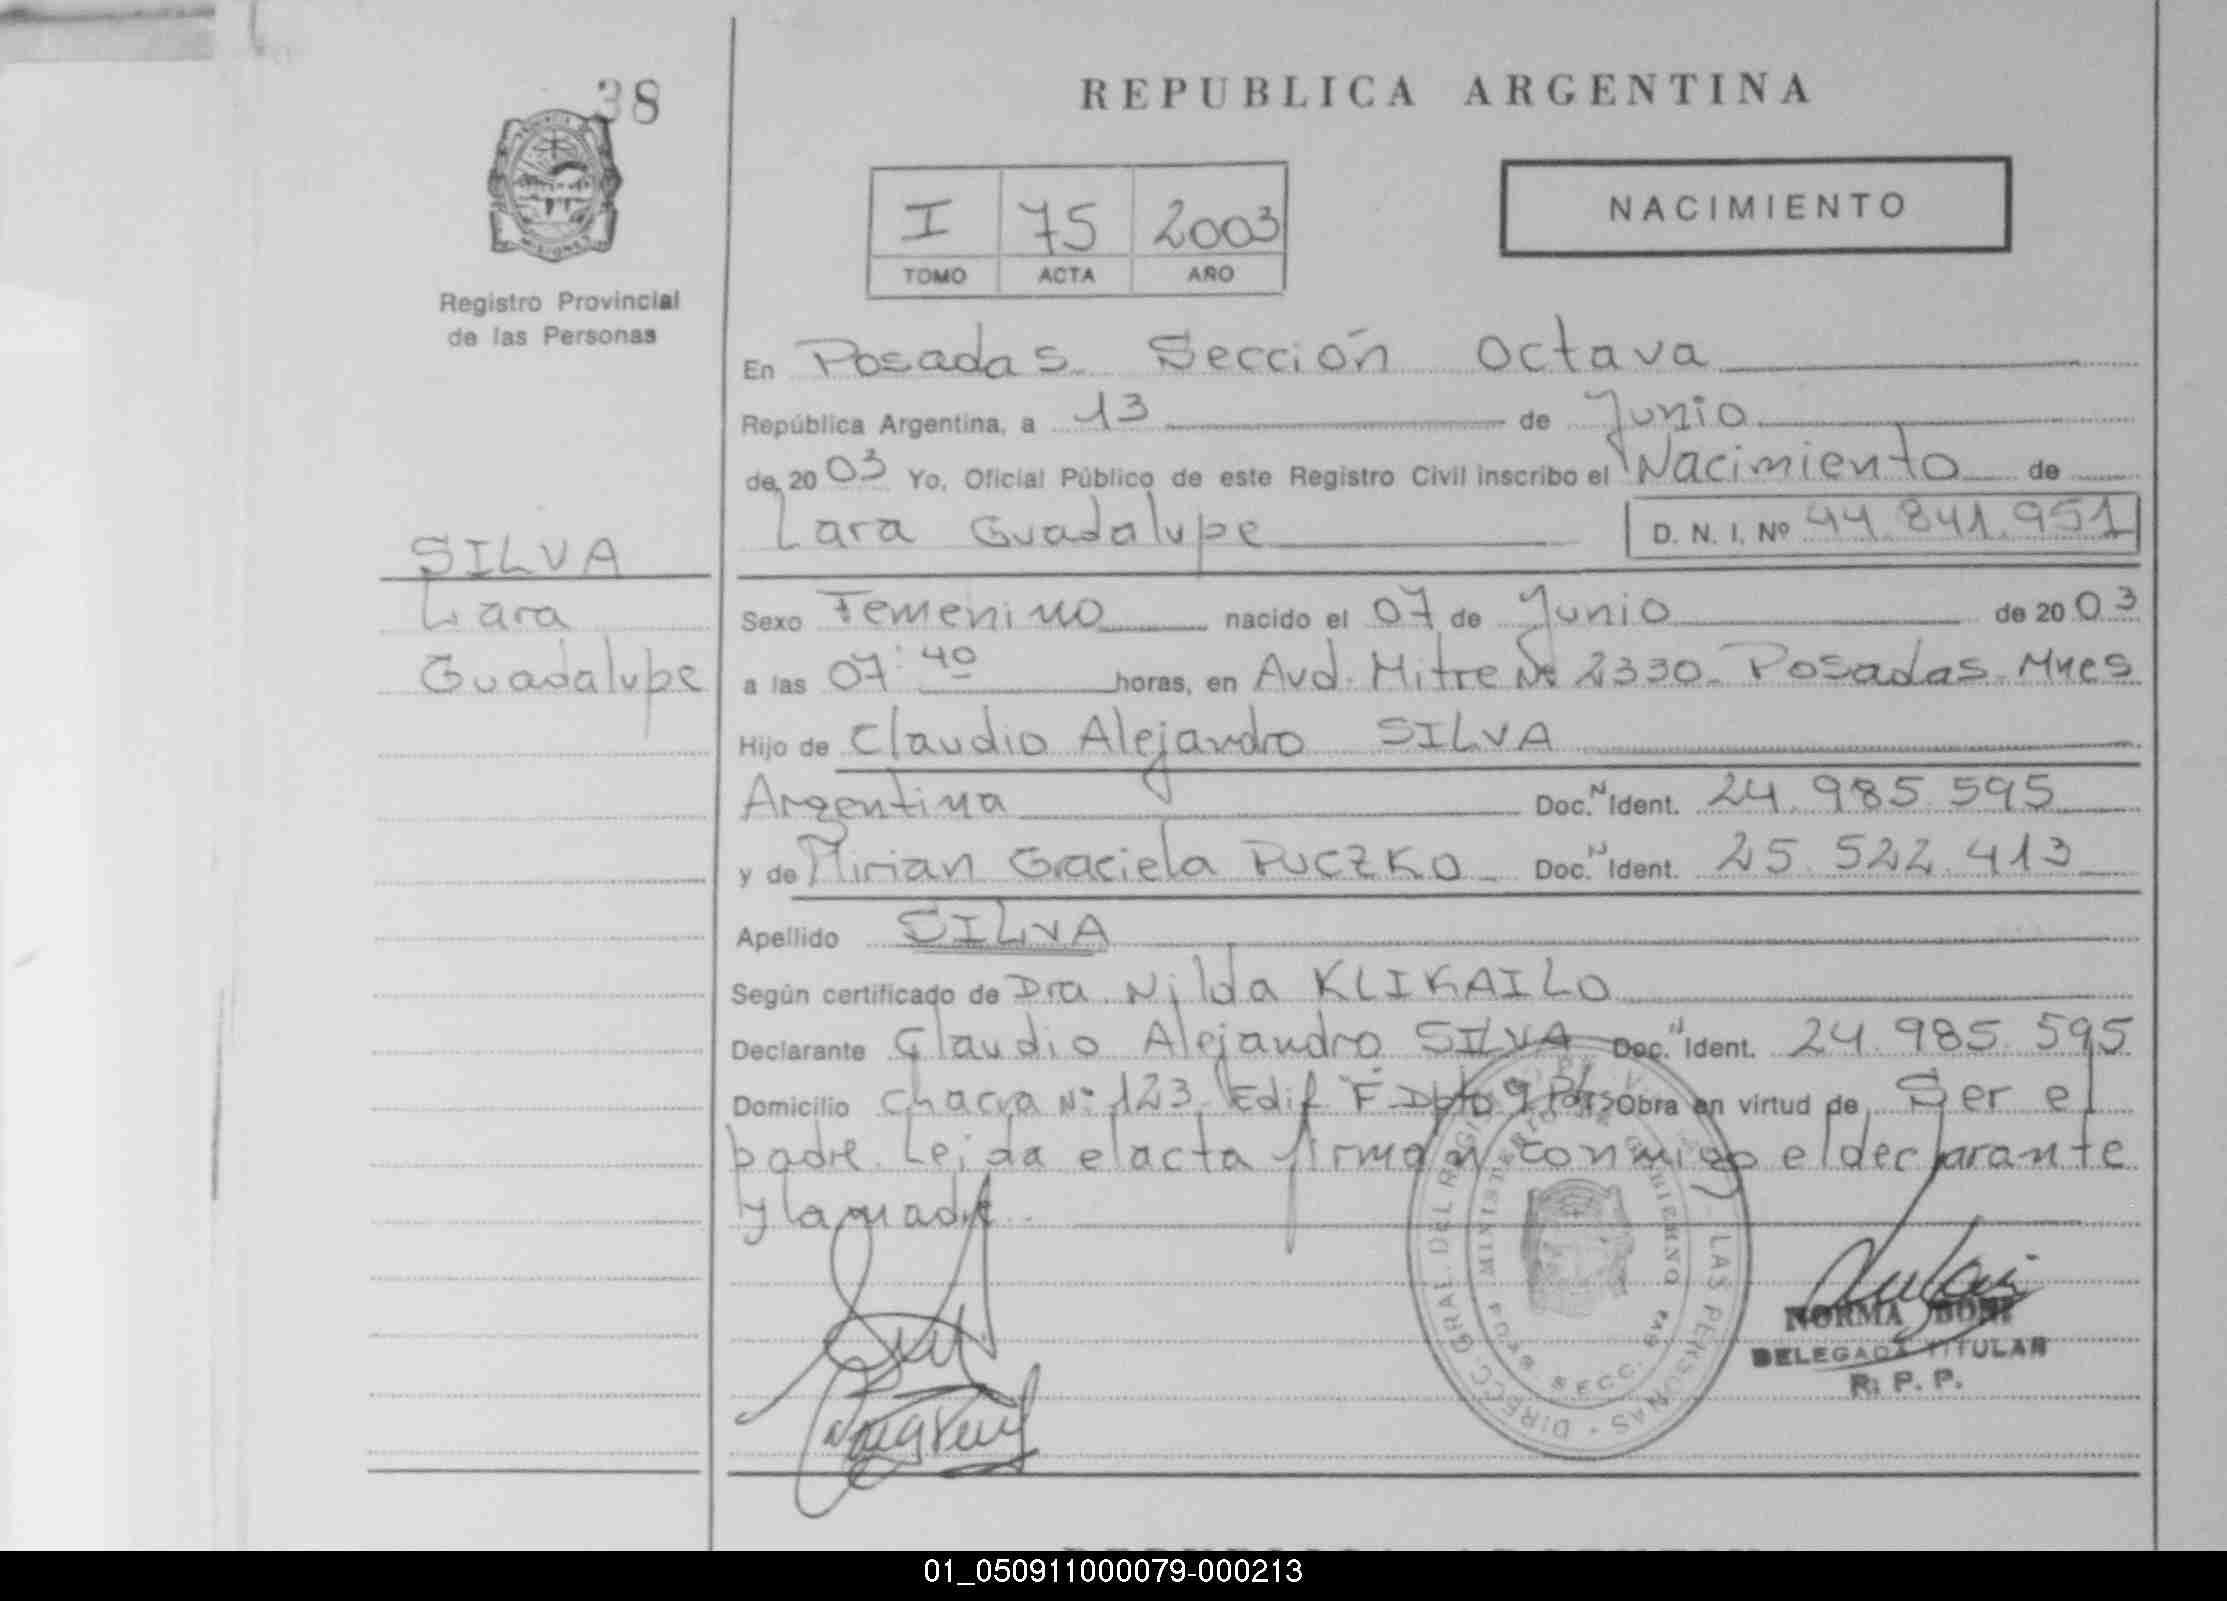 38
REPUBLICA ARGENTINA
PROVINCIA D
MISIONES
Registro Provincial
de las Personas
I 75 2003
TOMO ACTA AÑO
NACIMIENTO
En Posadas Sección Octava
República Argentina, a 13 de Junio
de 2003 Yo, Oficial Público de este Registro Civil inscribo el Nacimiento de
Lara Guadalupe D. N. I. Nº 44.841.951
SILVA
Lara
Guadalupe
Sexo Femenino nacido el 07 de Junio de 2003
a las 07:40 horas, en Avd. Mitre Nº 2330 - Posadas - Mnes
Hijo de Claudio Alejandro SILVA
Argentina Doc. N Ident. 24.985.595
y de Mirian Graciela PUCZKO Doc. N Ident. 25.522.413
Apellido SILVA
Según certificado de Dra. Nilda KLIKAILO
Declarante Claudio Alejandro SILVA Doc. N Ident. 24.985.595
Domicilio Chacra Nº 123 Edif "F" Dpto 9 Pdas Obra en virtud de Ser el
padre. Leida el acta firman conmigo el declarante
y la madre.
DIRECC GRAL DEL REGISTRO LAS PERSONAS
MINISTERIO DE GOBIERNO
SECC. 8va
NORMA
DELEGADA TITULAR
R. P. P.
01_050911000079-000213